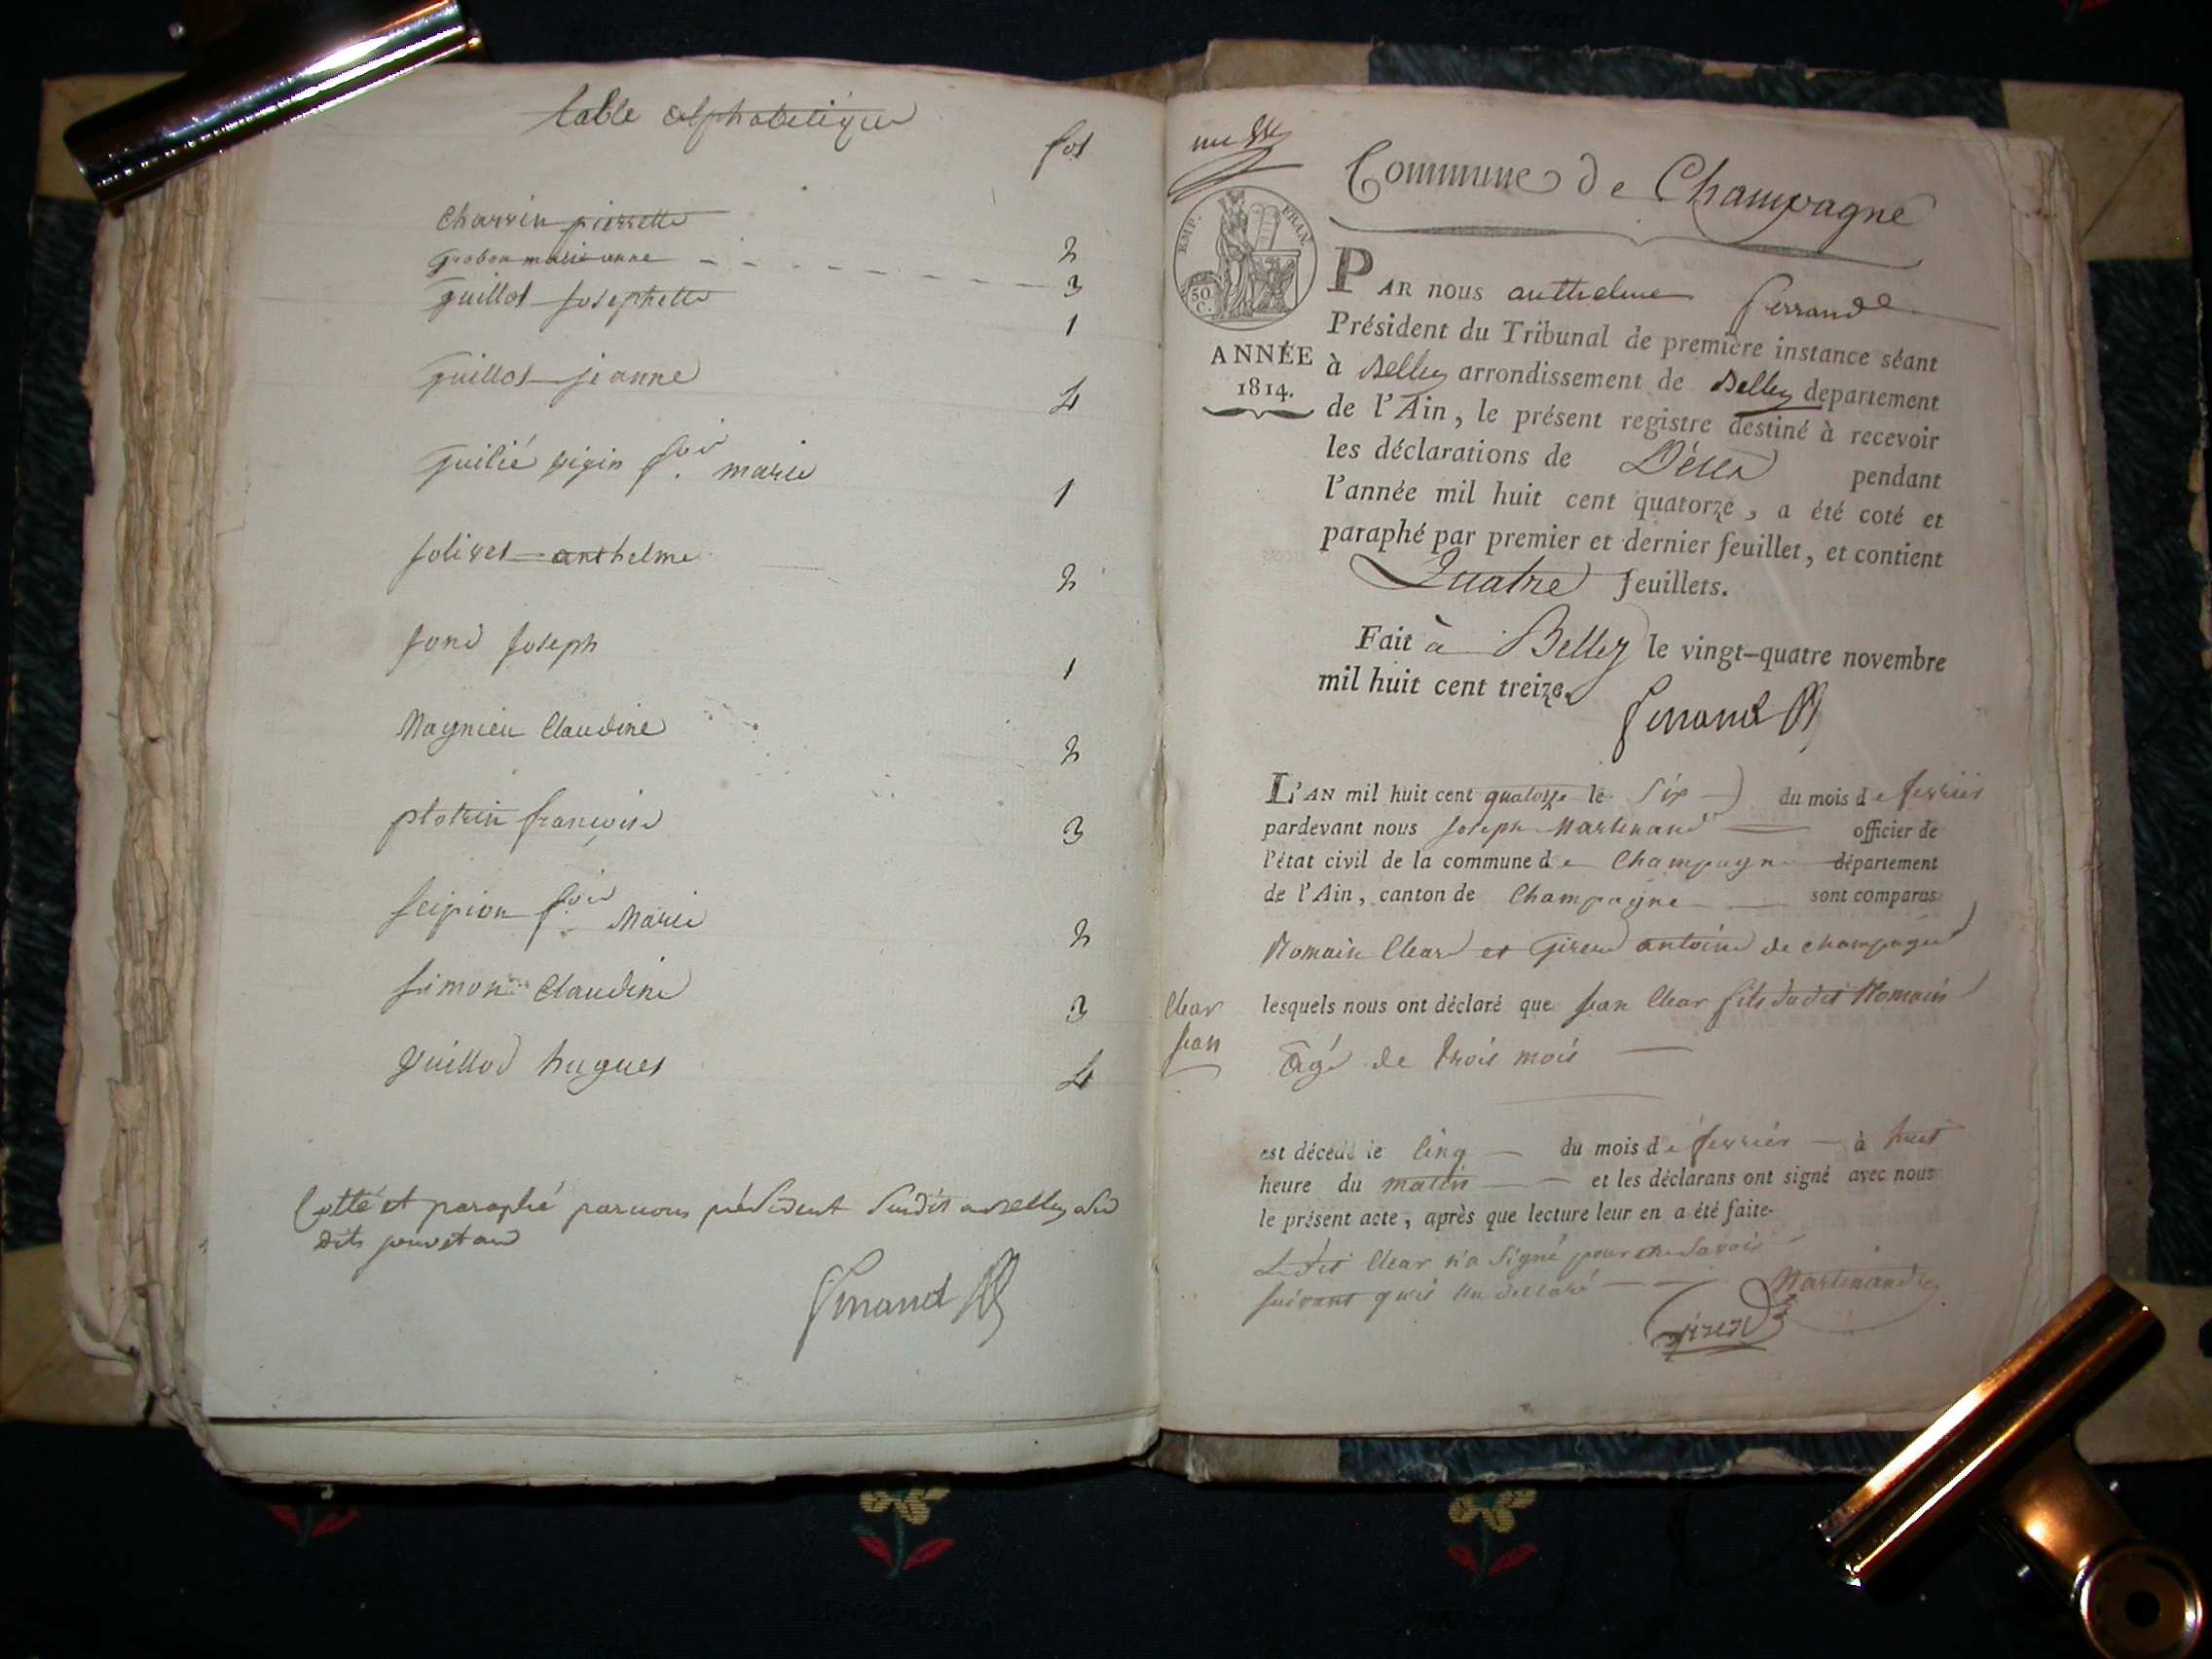 table alphabetique
fol
Charvin pierrette
2
grobon marie anne
3
guillot Josephette
1
guillot jeanne
4
guilié pigin f.oise marie
1
Jolivet anthelme
2
Jond Joseph
1
Magnieu Claudine
2
plotrin françoise
3
Scipion f.oise Marie
2
Simon Claudine
3
Vuillod hugues
4
Cotté et paraphé par nous président Susdit a Belley
dits jour et an
Ferrand
Commune de Champagne
EMP. FRAN.
50 C.
ANNÉE
1814.
PAR nous anthelme ferrand
Président du Tribunal de première instance séant
à Belley arrondissement de Belley departement
de l'Ain, le présent registre destiné à recevoir
les déclarations de Décès pendant
l'année mil huit cent quatorze, a été coté et
paraphé par premier et dernier feuillet, et contient
Quatre feuillets.
Fait à Belley le vingt-quatre novembre
mil huit cent treize.
Ferrand
L'AN mil huit cent quatorze le Six du mois de fevrier
pardevant nous Joseph Martinand officier de
l'état civil de la commune de Champagne département
de l'Ain, canton de Champagne sont comparus
Romain Clear et Girerd antoine de champagne
Clear
Jean
lesquels nous ont déclaré que Jean Clear fils dudit Romain
âgé de trois mois
est décédé le cinq du mois de fevrier à huit
heure du matin et les déclarans ont signé avec nous
le présent acte, après que lecture leur en a été faite
Ledit Clear n'a Signé pour ne Savoir
Suivant qu'il l'a déclaré
Martinand
Girerd